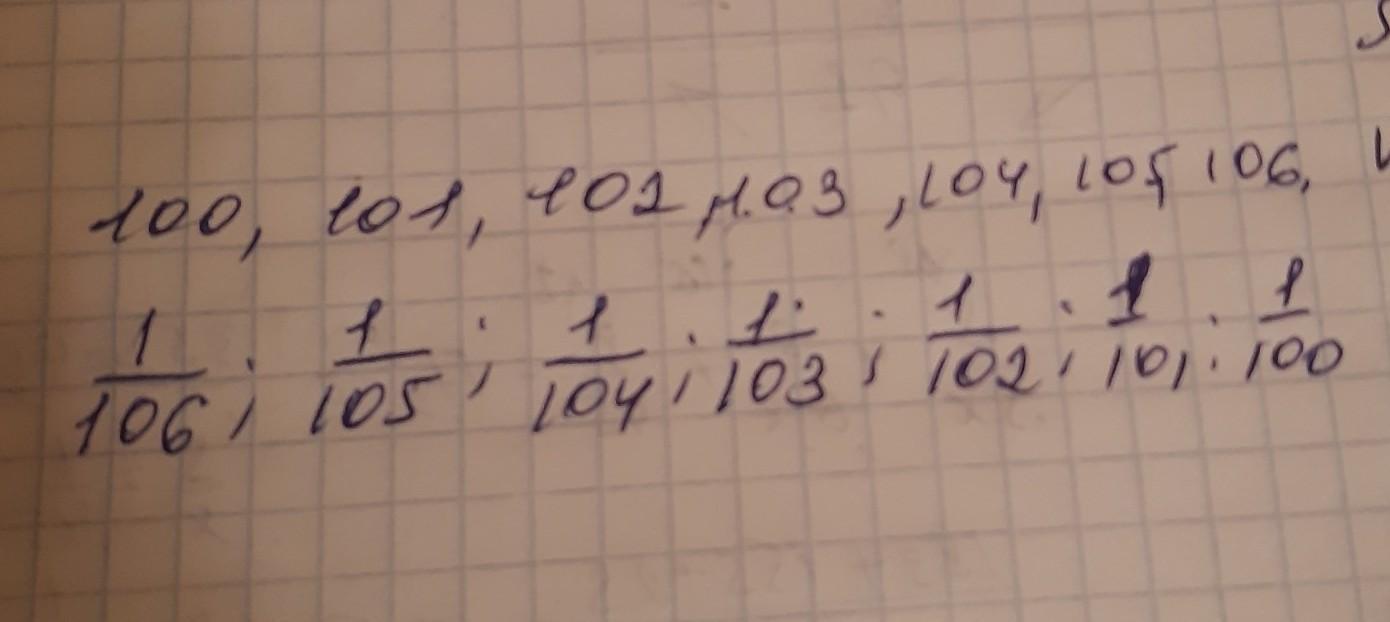 100, 101, 102, 103, 104, 105, 106,
1/106; 1/105; 1/104; 1/103; 1/102; 1/101; 1/100